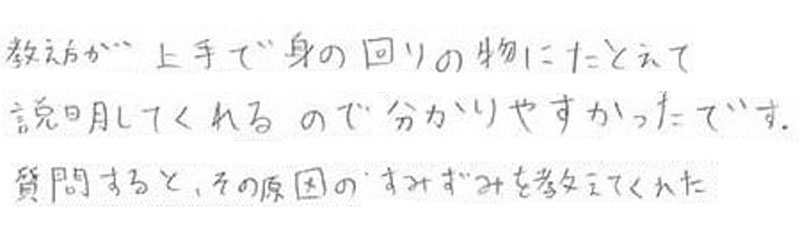 教え方が上手で身の回りの物にたとえて
説明してくれるので分かりやすかったです.
質問すると、その原因のすみずみを教えてくれた